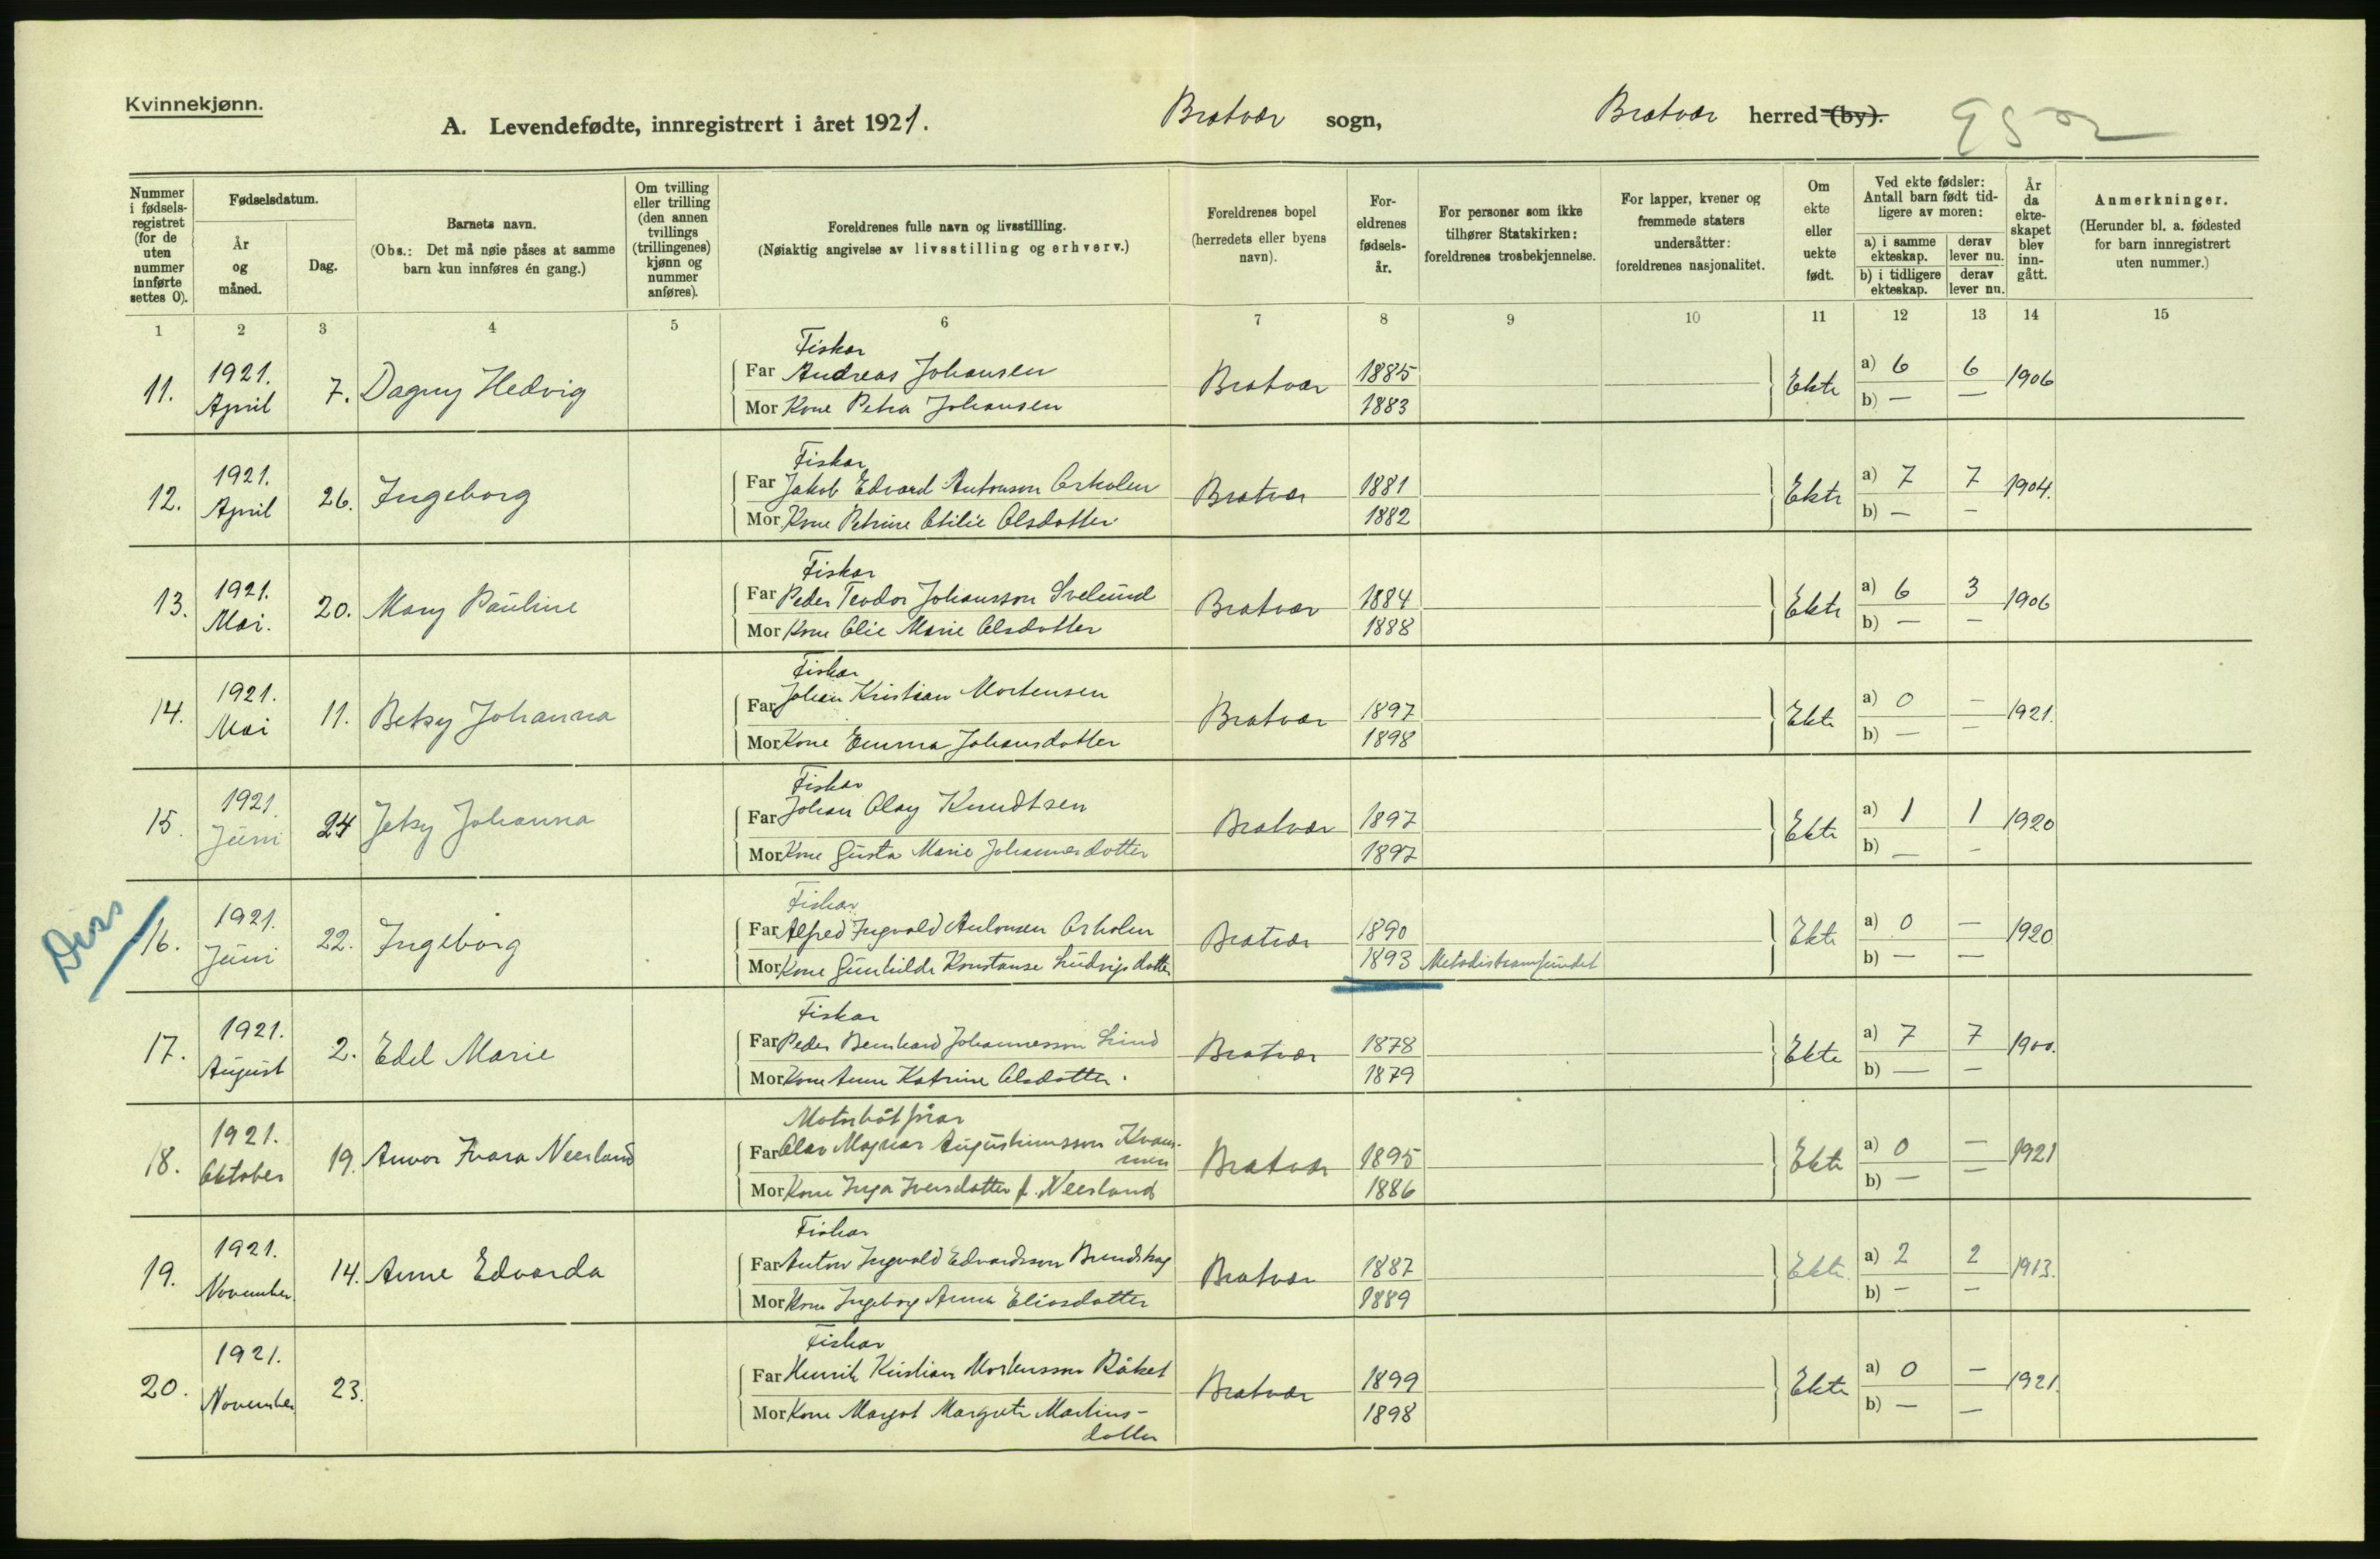 Kvinnekjønn.
A. Levendefødte, innregistrert i året 1921.
Bratvær sogn,
Bratvær herred (by).
Nummer i fødselsregistret (for de uten nummer innførte settes 0).
Fødselsdatum.
År og måned.
Dag.
Barnets navn.
(Obs.: Det må nøie påses at samme barn kun innføres én gang.)
Om tvilling eller trilling (den annen tvillings (trillingenes) kjønn og nummer anføres).
Foreldrenes fulle navn og livsstilling.
(Nøiaktig angivelse av livsstilling og erhverv.)
Foreldrenes bopel (herredets eller byens navn).
Foreldrenes fødselsår.
For personer som ikke tilhører Statskirken: foreldrenes trosbekjennelse.
For lapper, kvener og fremmede staters undersåtter: foreldrenes nasjonalitet.
Om ekte eller uekte født.
Ved ekte fødsler: Antall barn født tidligere av moren:
a) i samme ekteskap.
derav lever nu.
b) i tidligere ekteskap.
derav lever nu.
År da ekteskapet blev inngått.
Anmerkninger.
(Herunder bl. a. fødested for barn innregistrert uten nummer.)
1 2 3 4 5 6 7 8 9 10 11 12 13 14 15
Fiskar
11. 1921. April 7. Dagny Hedvig Far Andreas Johansen Bratvær 1885 Ekte a) 6 6 1906
Mor Kone Petra Johansen 1883 b) — —
Fiskar
12. 1921. April 26. Ingeborg Far Jakob Edvard Antonson Orholen Bratvær 1881 Ekte a) 7 7 1904.
Mor Kone Petrine Otilie Olsdotter 1882 b) — —
Fiskar
13. 1921. Mai. 20. Mary Pauline Far Peder Teodor Johansson Svelund Bratvær 1884 Ekte a) 6 3 1906
Mor Kone Olie Marie Olsdotter 1888 b) — —
Fiskar
14. 1921. Mai 11. Betsy Johanna Far Johan Kristian Mortensen Bratvær 1897 Ekte a) 0 — 1921.
Mor Kone Emma Johansdotter 1898 b) — —
Fiskar
15. 1921 Juni 24 Jetsy Johanna Far Johan Olay Knudtsen Bratvær 1897 Ekte a) 1 1 1920
Mor Kone Gusta Marie Johannesdotter 1897 b) — —
Diss
Fiskar
16. 1921. Juni 22. Ingeborg Far Alfred Ingvald Antonsen Orholen Bratvær 1890 Ekte a) 0 — 1920
Mor Kone Gunhilde Konstanse Ludvigsdotter 1893 Metodistsamfundet b) — —
Fiskar
17. 1921. August 2. Edel Marie Far Peder Bernhard Johannesson Lund Bratvær 1878 Ekte a) 7 7 1900.
Mor Kone Anne Katrine Olsdotter. 1879 b) — —
Motorbåtførar
18. 1921. Oktober 19. Anvor Ivara Neerland Far Olav Magnar Augustinusson Bratvær 1895 Ekte a) 0 — 1921
Mor Kone Inga Iversdotter f. Neerland 1886 b) — —
Fiskar
19. 1921. November 14. Anne Edvarda Far Anton Ingvald Edvardson Brundskag Bratvær 1887 Ekte. a) 2 2 1913.
Mor Kone Ingeborg Anna Eliasdotter 1889 b) — —
Fiskar
20. 1921. November 23. Far Henrik Kristian Mortensson Råket Bratvær 1899 Ekte a) 0 — 1921.
Mor Kone Margot Margrete Martins-
dotter 1898 b) — —